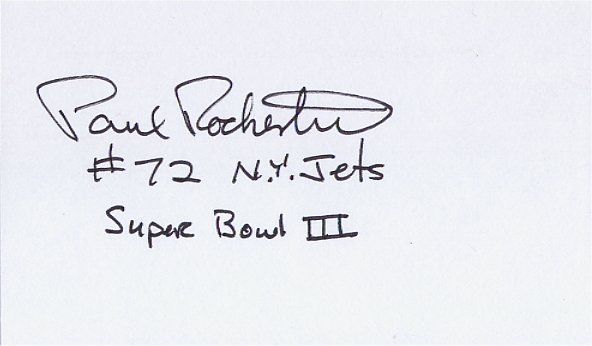 Paul Rochester
#72 N.Y. Jets
Super Bowl III